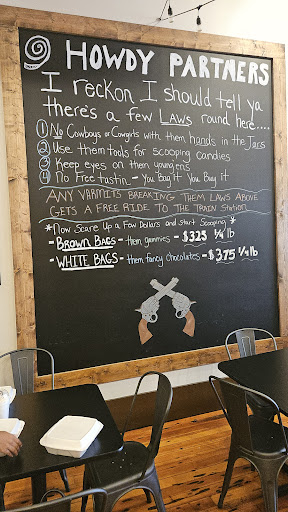 HOWDY PARTNERS
I reckon I should tell ya
there's a few LAWS round here....
1 No Cowboys or Cowgirls with them hands in the Jars
2 Use them tools for scooping candies
3 Keep eyes on them youngens
4 No Free tastin - You Bag it You Buy it
ANY VARMITS BREAKING THEM LAWS ABOVE
GETS A FREE RIDE TO THE TRAIN STATION
*Now Scare Up a Few Dollars and start Scooping*
- BROWN BAGS - them gummies - $3.25 1/4 lb
- WHITE BAGS - them fancy chocolates - $3.75 1/4 lb